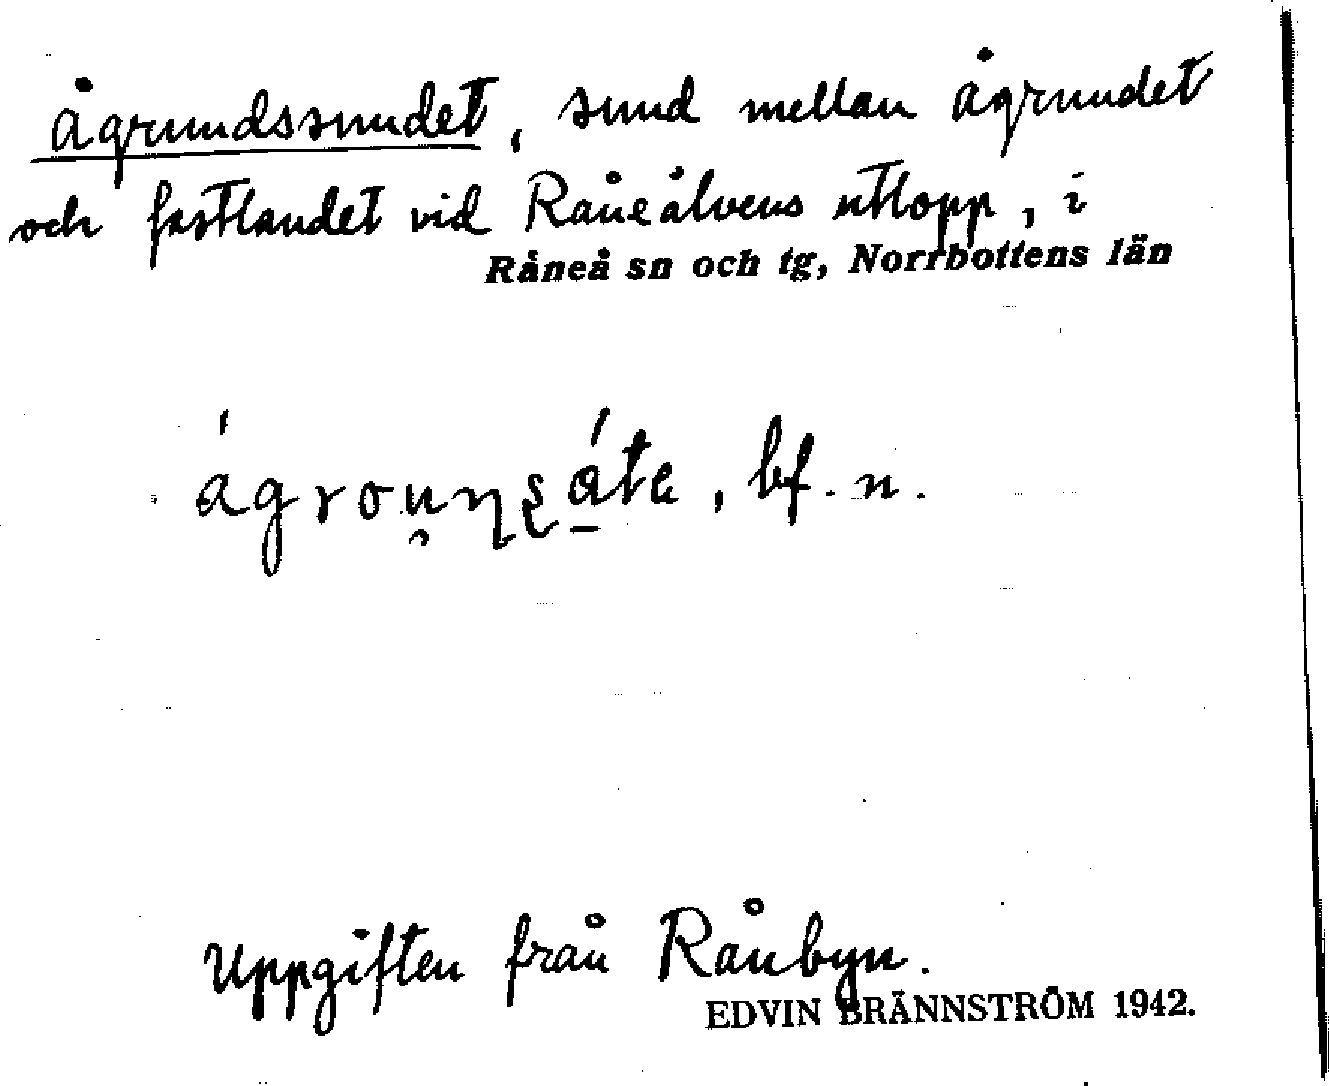 Ågrundssundet, sund mellan Ågrundet
och fastlandet vid Råneälvens utlopp, i
Råneå sn och tg, Norrbottens län
bf. n.
Uppgiften från Rånbyn.
EDVIN BRÄNNSTRÖM 1942.